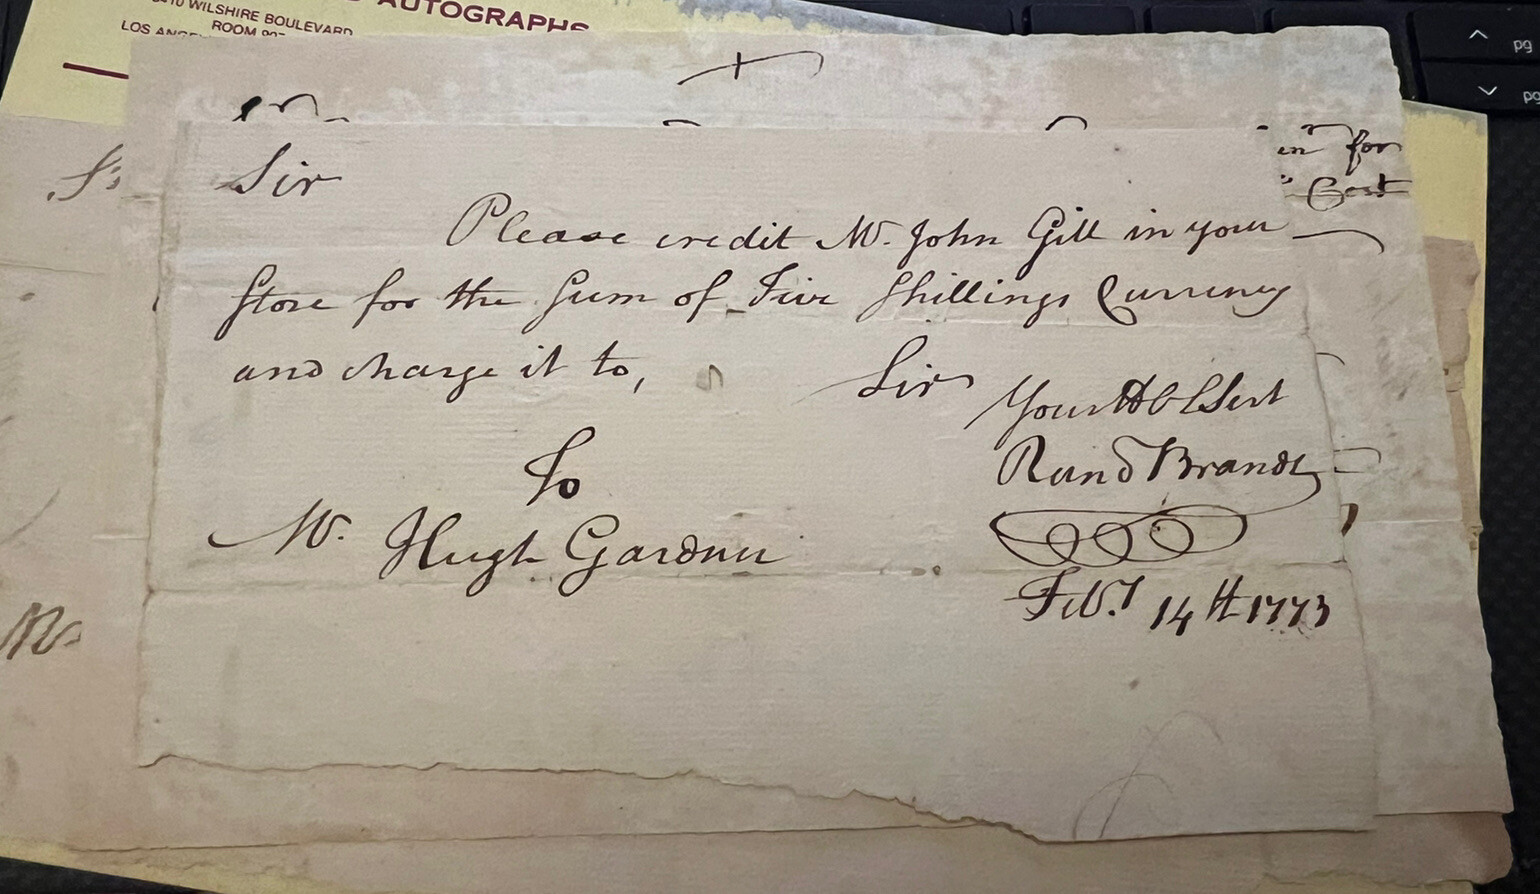 AUTOGRAPHS
WILSHIRE BOULEVARD
ROOM
LOS
for
Cost
Sir
Please credit Mr. John Gill in your
Store for the Sum of Five Shillings Currency
and charge it to,
Sir
Your H Ob Sert
Rand Brandt
To
Mr. Hugh Gardner
Feb.y 14th 1773
Mr
pg
pg